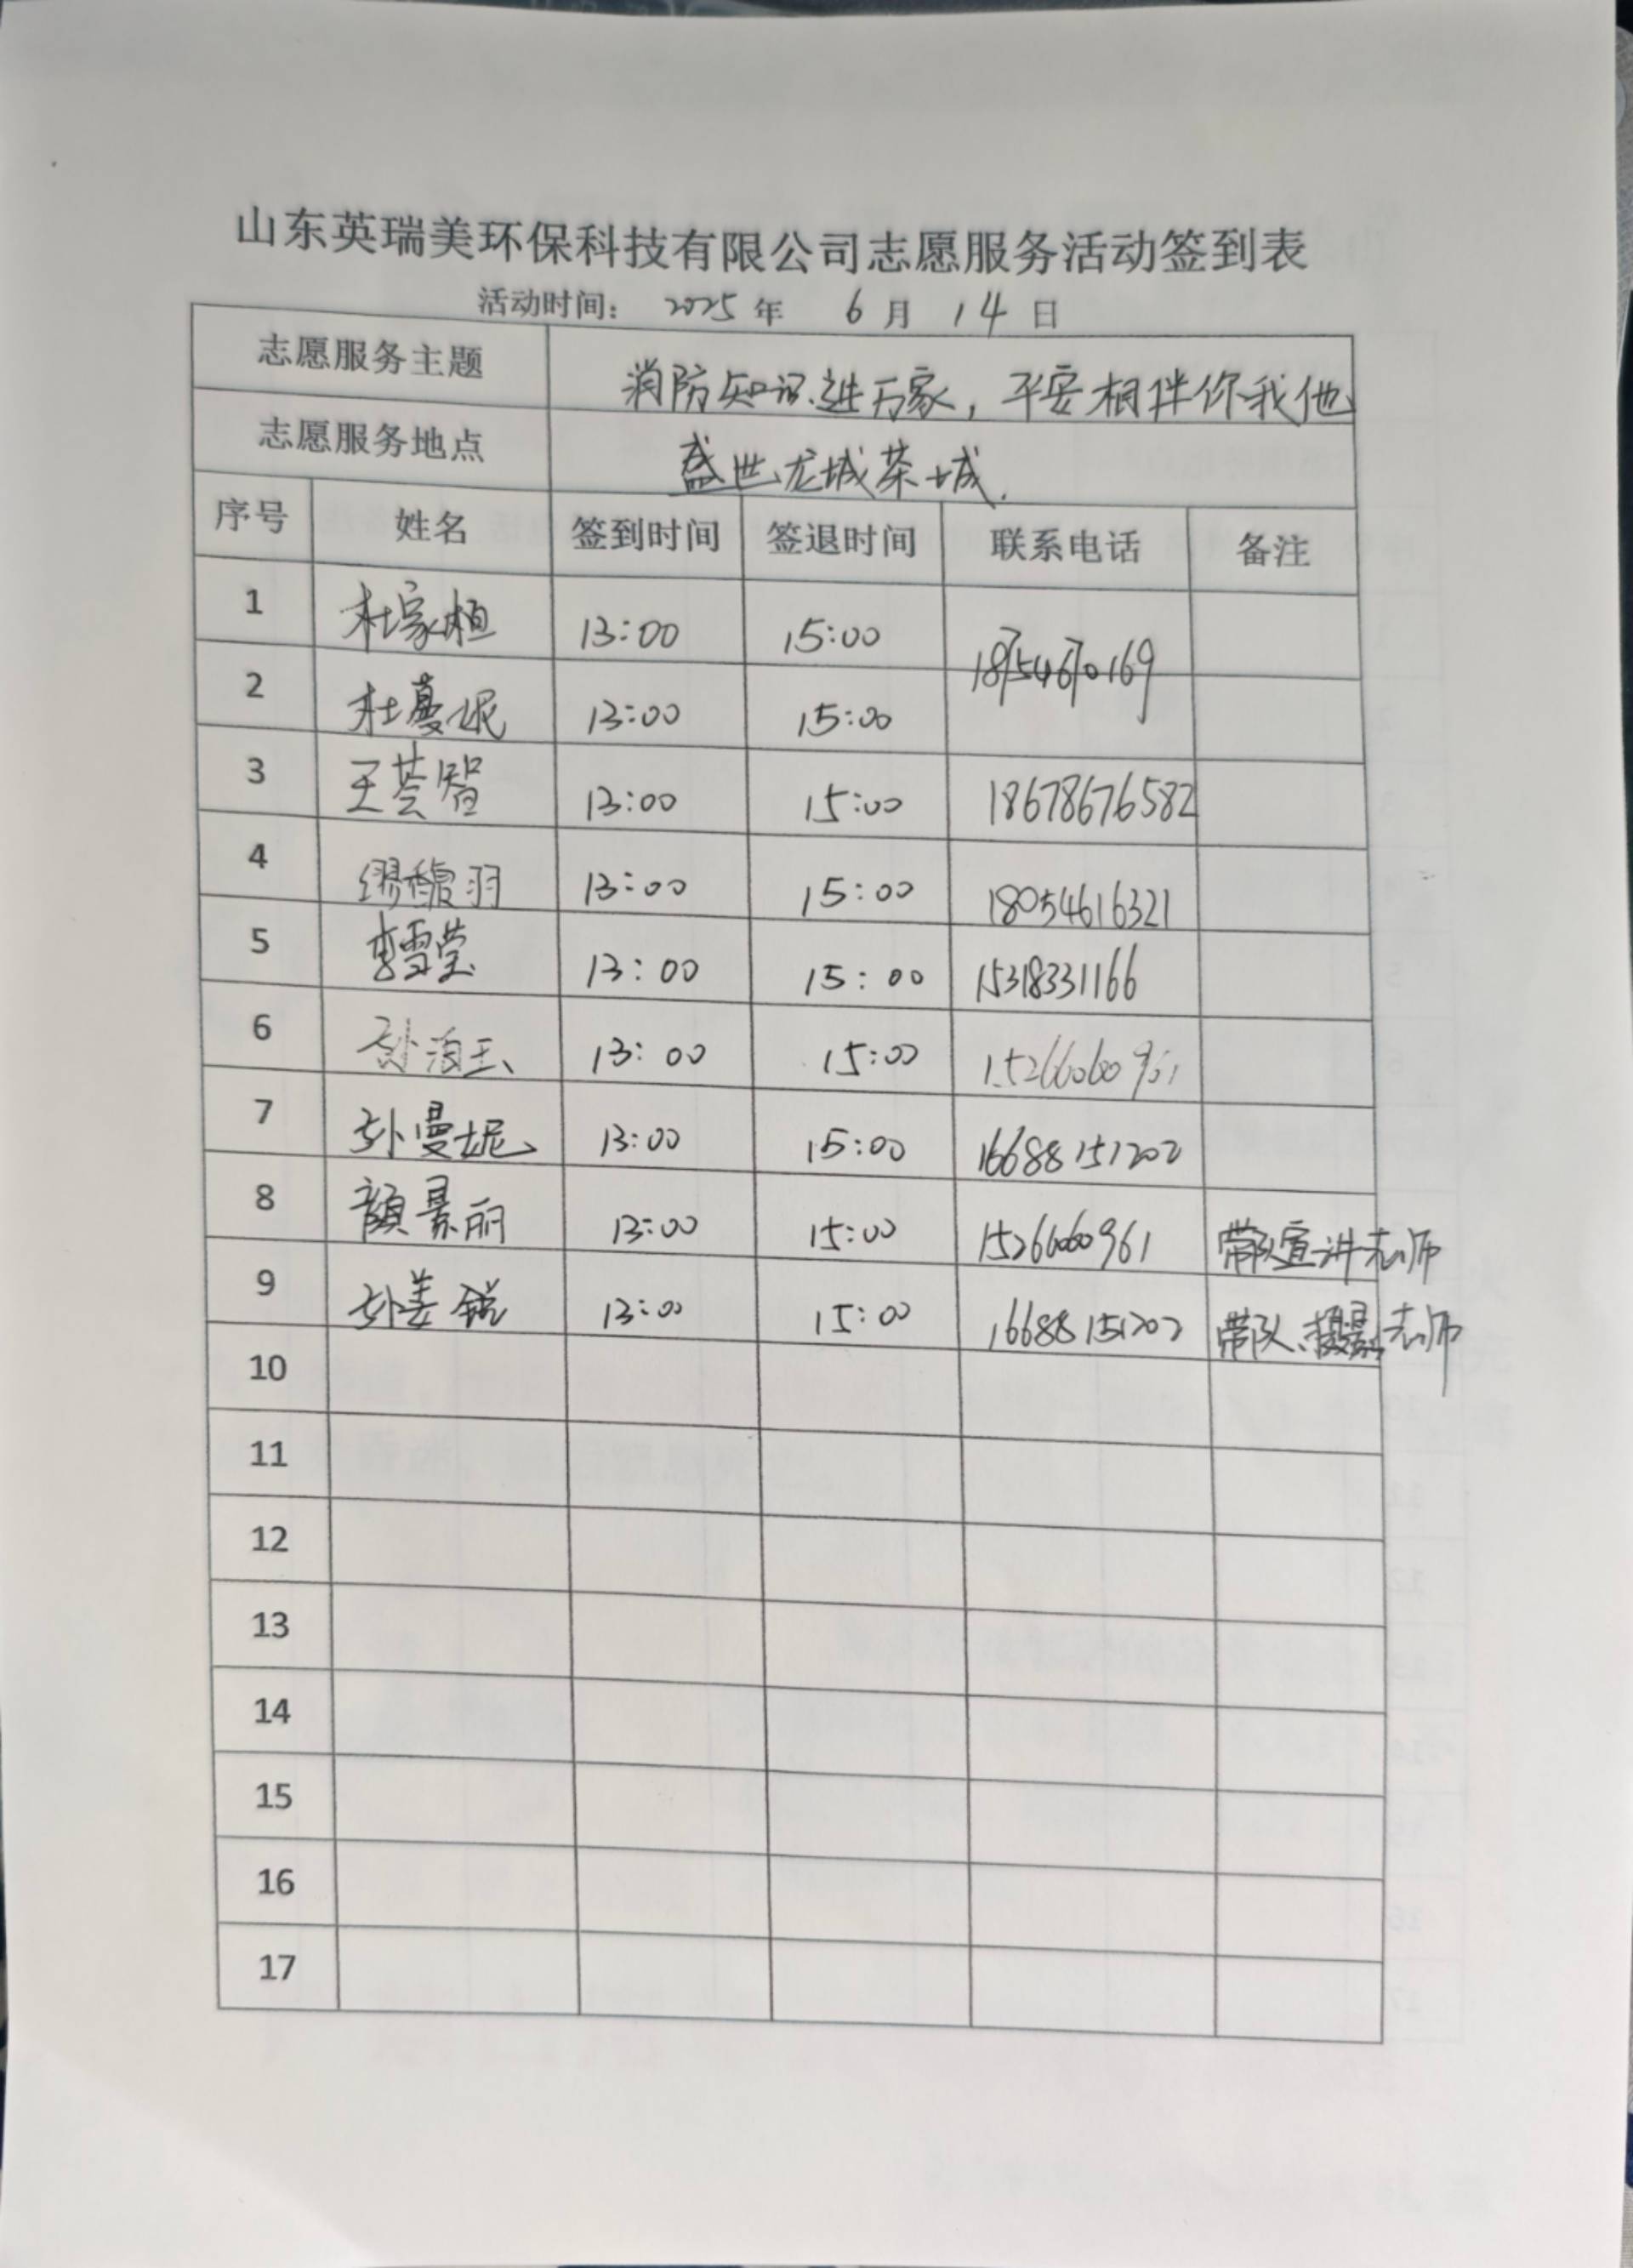 山东英瑞美环保科技有限公司志愿服务活动签到表
活动时间: 2025 年 6 月 14 日
志愿服务主题 消防知识进万家，平安相伴你我他
志愿服务地点 盛世龙城茶城.
序号 姓名 签到时间 签退时间 联系电话 备注
1 杜家桓 13:00 15:00 18754670169
2 杜蔓妮 13:00 15:00
3 王荟智 13:00 15:00 18678676582
4 缪馥羽 13:00 15:00 18054616321
5 李雪莹 13:00 15:00 15318331166
6 孙泊玉 13:00 15:00 15266060961
7 孙曼妮 13:00 15:00 16688151202
8 颜景丽 13:00 15:00 15266060961 带队宣讲老师
9 孙姜锐 13:00 15:00 16688151202 带队、摄影老师
10
11
12
13
14
15
16
17